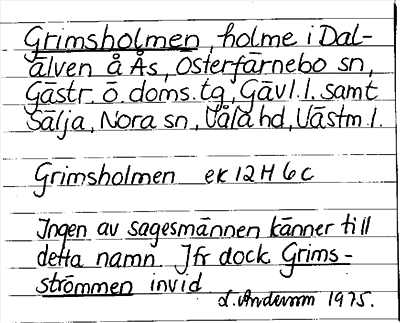 Grimsholmen, holme i Dal-
älven å Ås, Österfärnebo sn,
Gästr. ö. doms. tg, Gävl. l. samt
Sälja, Nora sn, Våla hd, Västm l.
Grimsholmen ek 12 H 6 C
Ingen av sagesmännen känner till
detta namn. Jfr dock Grims-
strömmen invid.
L. Anderson 1975.